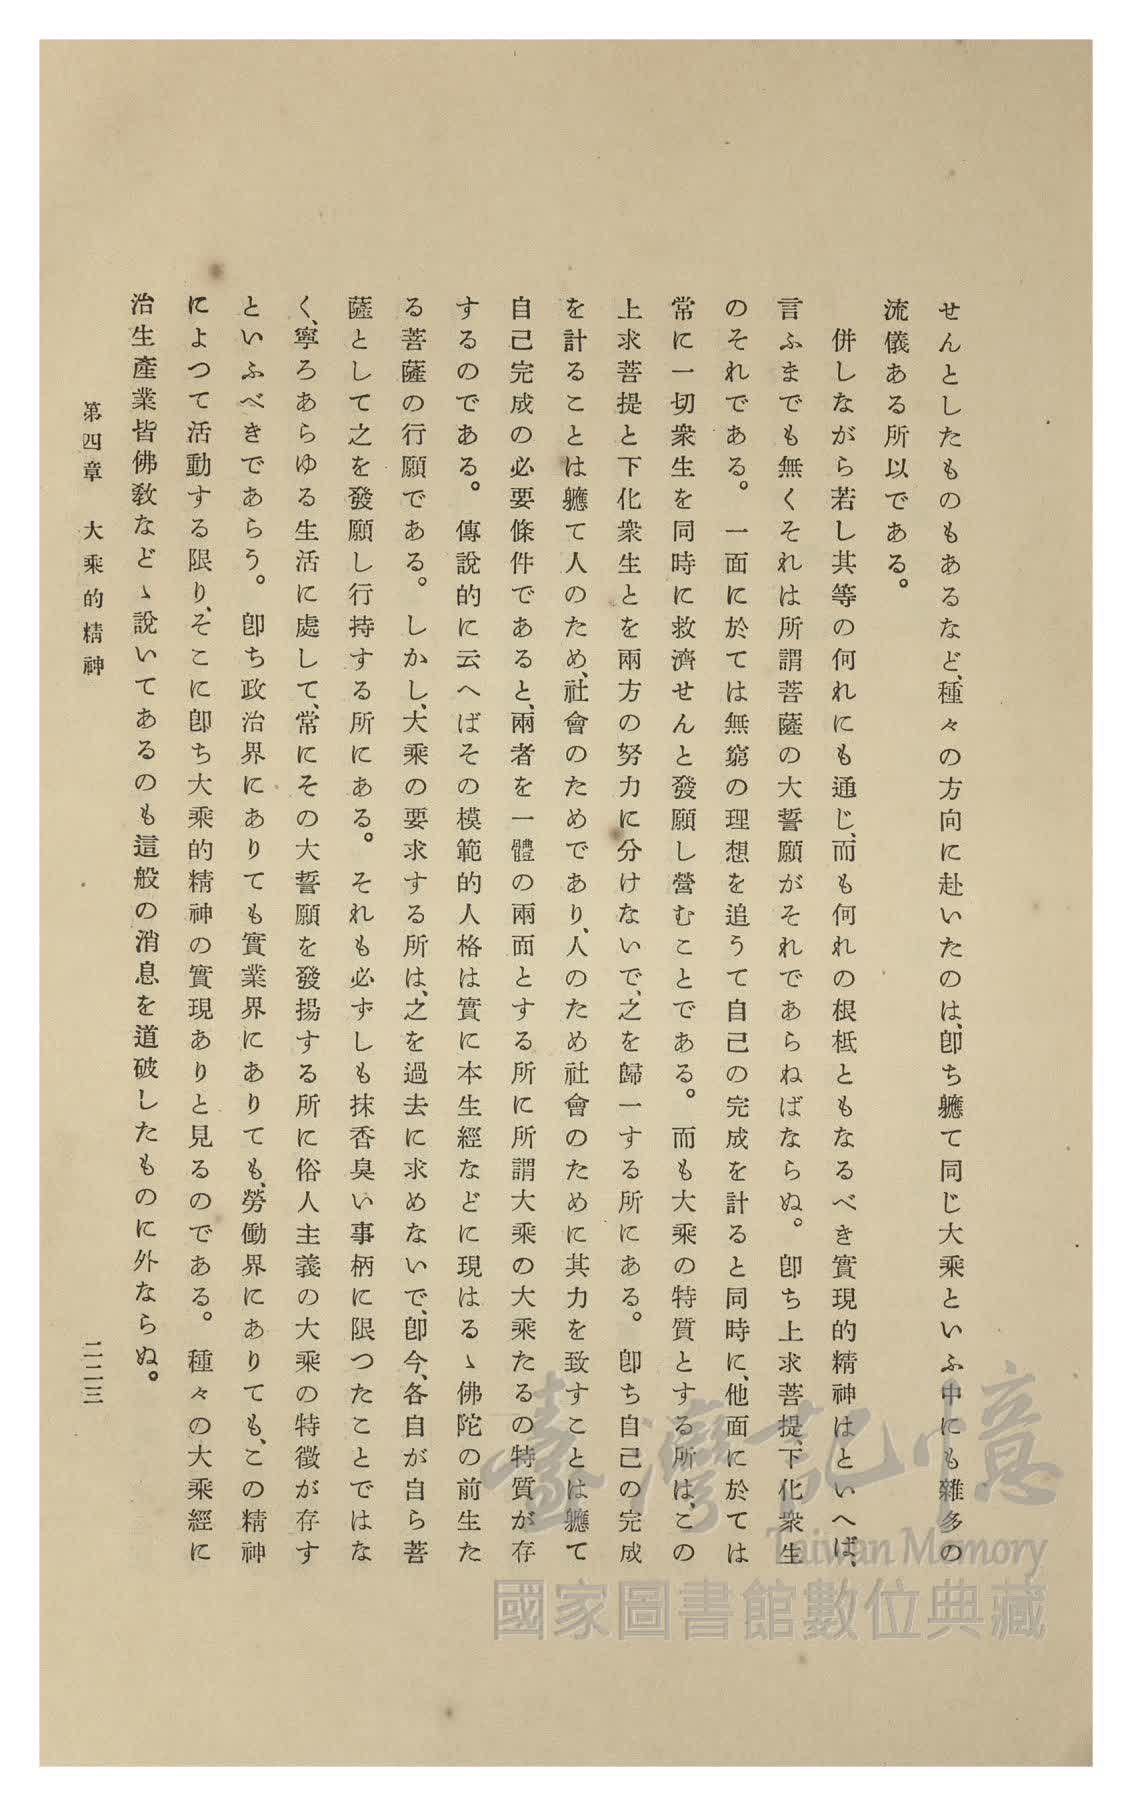 せんとしたものもあるなど、種々の方向に赴いたのは、卽ち軈て同じ大乘といふ中にも雜多の
流儀ある所以である。
併しながら若し其等の何れにも通じ、而も何れの根柢ともなるべき實現的精神はといへば、
言ふまでも無くそれは所謂菩薩の大誓願がそれであらねばならぬ。卽ち上求菩提、下化衆生
のそれである。一面に於ては無窮の理想を追うて自己の完成を計ると同時に、他面に於ては
常に一切衆生を同時に救濟せんと發願し營むことである。而も大乘の特質とする所は、この
上求菩提と下化衆生とを兩方の努力に分けないで、之を歸一する所にある。卽ち自己の完成
を計ることは軈て人のため、社會のためであり、人のため社會のために其力を致すことは軈て
自己完成の必要條件であると、兩者を一體の兩面とする所に所謂大乘の大乘たるの特質が存
するのである。傳說的に云へばその模範的人格は實に本生經などに現はるゝ佛陀の前生た
る菩薩の行願である。しかし、大乘の要求する所は、之を過去に求めないで、卽今、各自が自ら菩
薩として之を發願し行持する所にある。それも必ずしも抹香臭い事柄に限つたことではな
く、寧ろあらゆる生活に處して、常にその大誓願を發揚する所に俗人主義の大乘の特徵が存す
といふべきであらう。卽ち政治界にありても實業界にありても、勞働界にありても、この精神
によつて活動する限り、そこに卽ち大乘的精神の實現ありと見るのである。種々の大乘經に
治生產業皆佛敎などゝ說いてあるのも這般の消息を道破したものに外ならぬ。
第四章　大乘的精神　二二三
臺灣記憶
Taiwan Memory
國家圖書館數位典藏